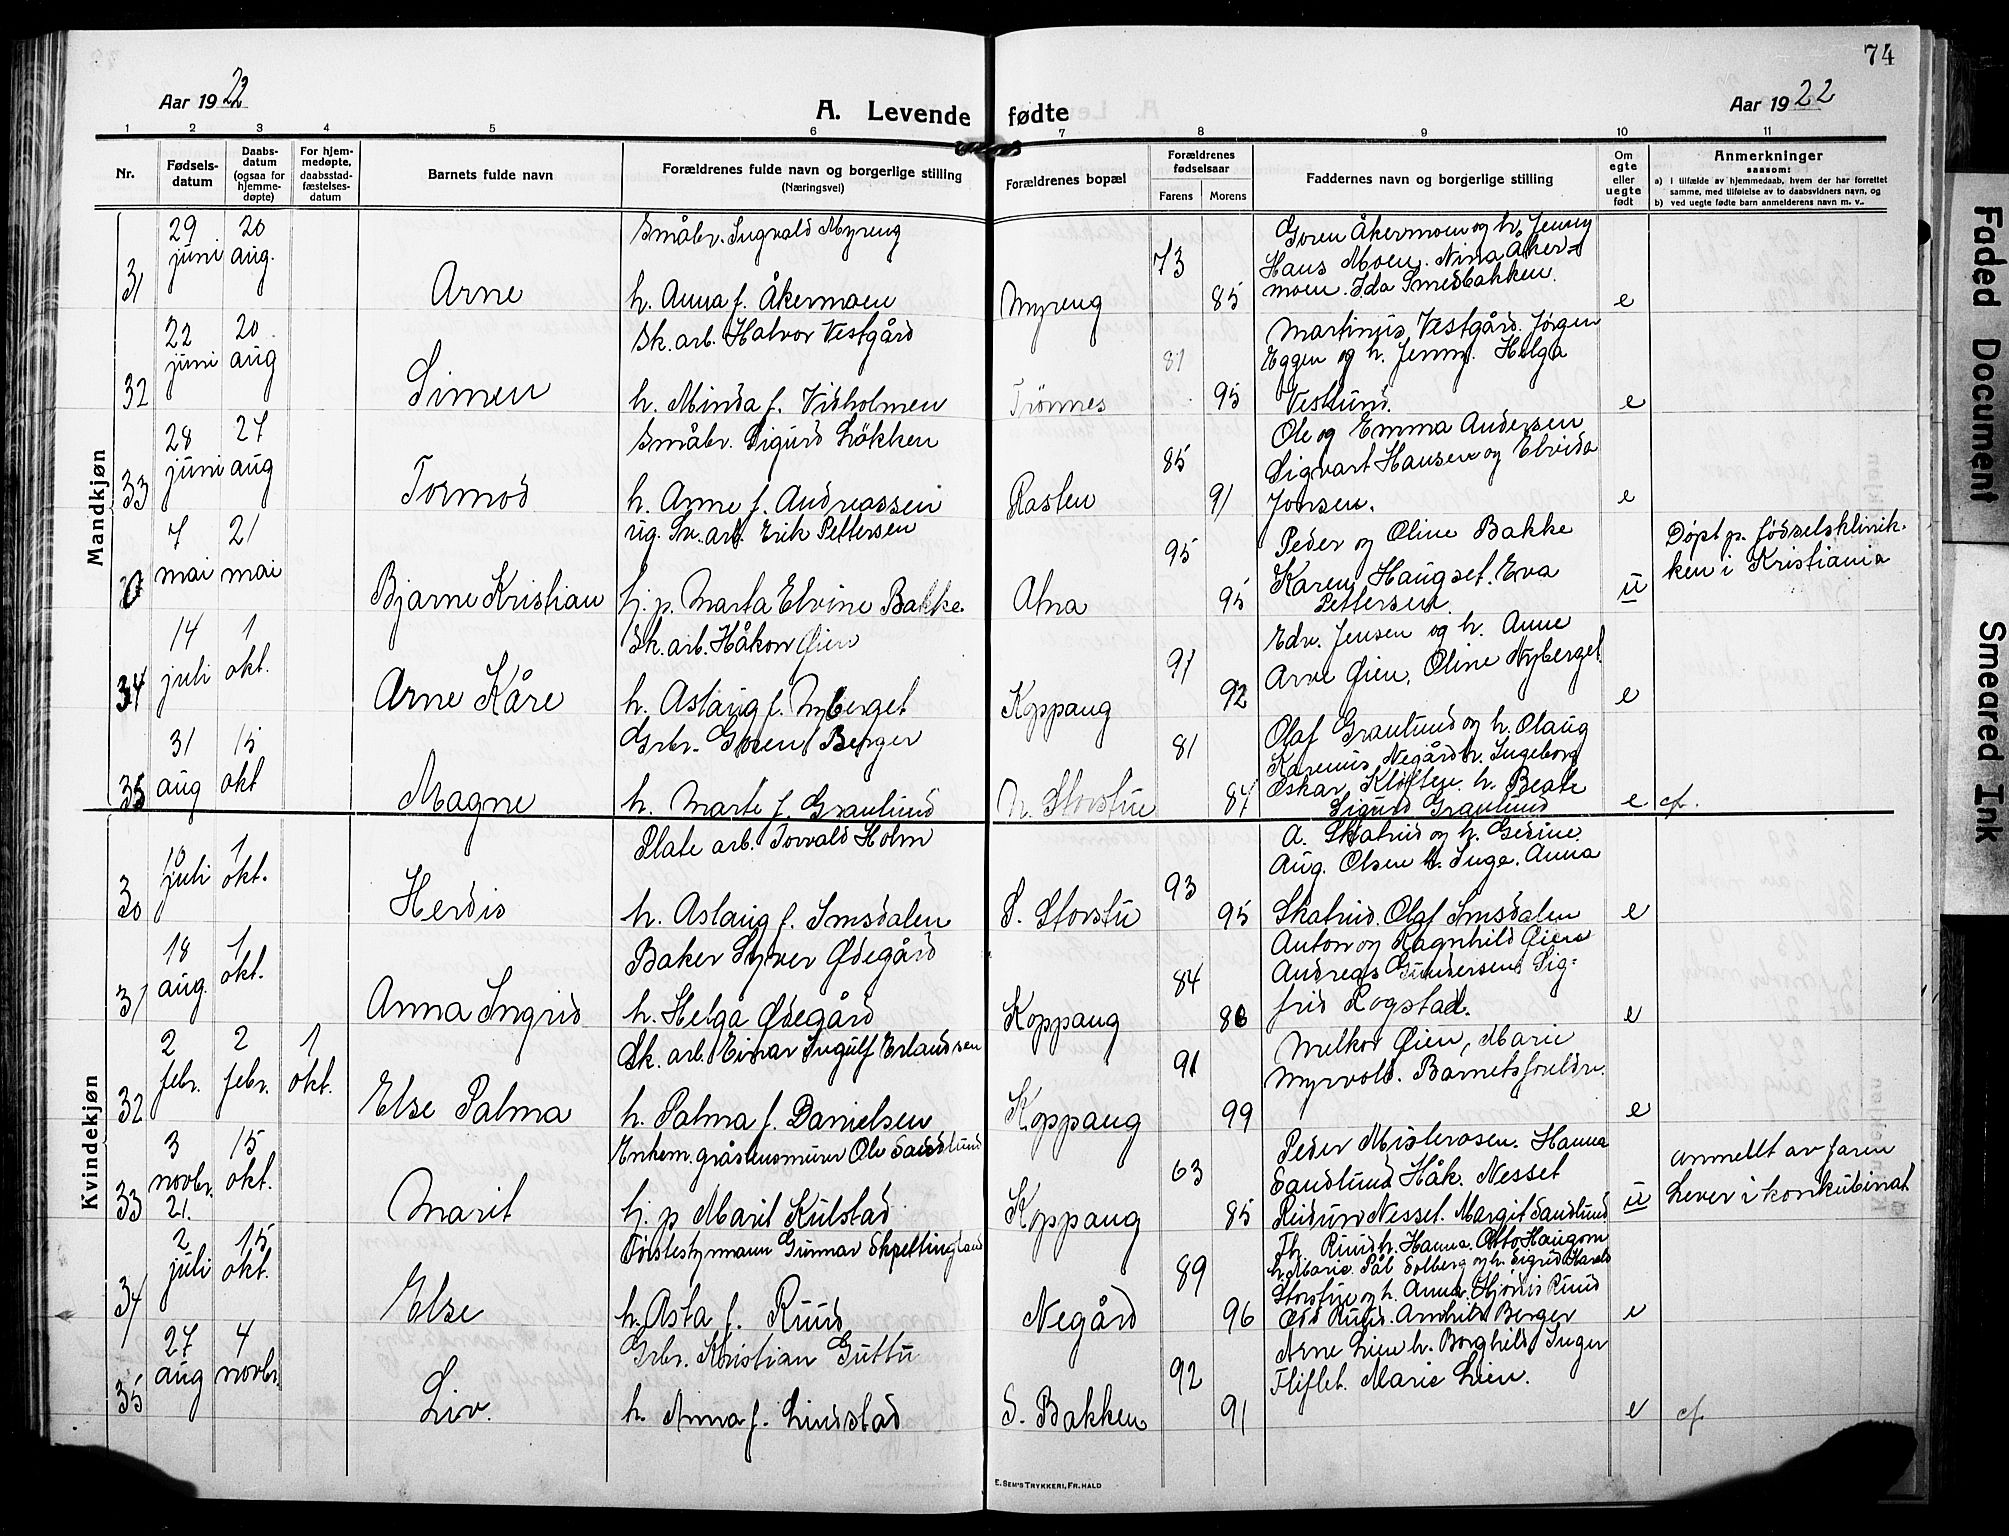 74
Aar 1922
A. Levende fødte
Aar 1922
1 2 3 4 5 6 7 8 9 10 11
Nr.
Fødsels-
datum
Daabs-
datum
(ogsaa for
hjemme-
døpte)
For hjem-
medøpte,
daabsstad-
fæstelses-
datum
Barnets fulde navn
Forældrenes fulde navn og borgerlige stilling
(Næringsvei)
Forældrenes bopæl
Forældrenes
fødselsaar
Farens Morens
Faddernes navn og borgerlige stilling
Om
egte
eller
uegte
født
Anmerkninger
saasom:
a) I tilfælde av hjemmedaab, hvem der har forrettet
samme, med tilføielse av to daabsvidners navn, og
b) ved uegte fødte barn anmelderens navn m. v..
Mandkjøn
31 29 juni 20 aug. Arne
Småbr. Ingvald Myreng
h. Anna f. Åkermoen
Myreng 73 85
Goren Åkermoen og h. Jenny
Hans Moen. Nina Åker-
moen. Ida Smedbakken.
e
32 22 juni 20 aug Simen
Sk. arb. Halvor Vestgård
h. Minda f. Vidholmen
Trønnes 81 95
Martinus Vestgård. Jørgen
Eggen og h. Jenny. Helga
Veslund.
e
33 28 juni 27 aug Tormod
Småbr. Sigurd Løkken
h. Anne f. Andreassen
Rasten 85 91
Ole og Emma Andersen
Sigvart Hansen og Elvida
Jonsen.
e
7 mai 21 mai Bjarne Kristian
ug. Sk. arb. Erik Pettersen
hj. p. Marta Elvine Bakke.
Atna 95 95
Peder og Oline Bakke
Karen Haugset. Eva
Pettersen.
u
Døpt p. fødselsklinik-
ken i Kristiania
34 14 juli 1 okt. Arne Kåre
Sk. arb. Håkon Øien
h. Aslaug f. Nyberget
Koppang 91 92
Edv. Jensen og h. Anne
Arve Øien, Oline Nyberget.
e
35 31 aug 15 okt Magne
Grbr. Goren Berger
h. Marte f. Granlund
N. Storstue 81 84
Olaf Granlund og h. Olaug
Karenius Negård h. Ingeborg
Oskar Kløften. h. Beate
Sigurd Granlund
e cf.
Kvindekjøn
30 10 juli 1 okt. Herdis
Plate arb. Torvald Holm
h. Aslaug f. Imsdalen
S. Storstu 93 95
A. Skatrud og h. Gedine.
Aug. Olsen h. Inga. Anna
Skatrud. Olaf Imsdalen
e
31 18 aug. 1 okt. Anna Ingrid
Baker Syver Ødegård
h. Helga Ødegård
Koppang 84 86
Anton og Ragnhild Øien
Andreas Gundersen. Sig-
frid Rogstad.
e
32 2 febr. 2 febr. 1 okt. Else Palma
Sk. arb. Einar Ingulf Erlandsen
h. Palma f. Danielsen
Koppang 91 99
Melkor Øien, Marie
Myrvold. Barnets foreldre.
e
33 3 novbr. 21. 15 okt. Marit
Enkem. gråstensmurer Ole Sandlund
hj. p Marit Kulstad
Koppang 63 85
Peder Misterosen. Hanna
Sandlund. Håk. Nesset
Reidun Nesset. Margit Sandlund
u
anmeldt av faren
Lever i konkubinat
34 2 juli 15 okt. Else
Førstestyrmann Gunnar Skrettingland
h. Asta f. Ruud
Negård 89 96
Th. Ruud h. Hanna. Otto Haugom
h. Marie. Pål Solberg og h. Sigrid Harald
Storstue og h. Anna. Hjørdis Ruud
Odd Ruud. Arnhild Berger
e
35 27 aug 4 novbr. Liv.
Grbr. Kristian Guttu
h. Anna f. Lindstad
S. Bakken 92 91
Arne Lien h. Borghild, Inger
Fliflet. Marie Lien.
e cf.
E. SEM'S TRYKKERI, FR. HALD
Faded Document
Smeared Ink